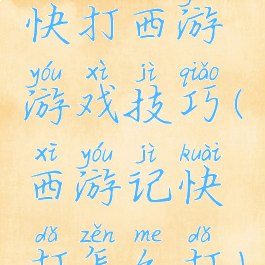 快打西游
yóu xì jì qiǎo
游戏技巧(
xī yóu jì kuài
西游记快
dǎ zěn me dǎ
打怎么打)